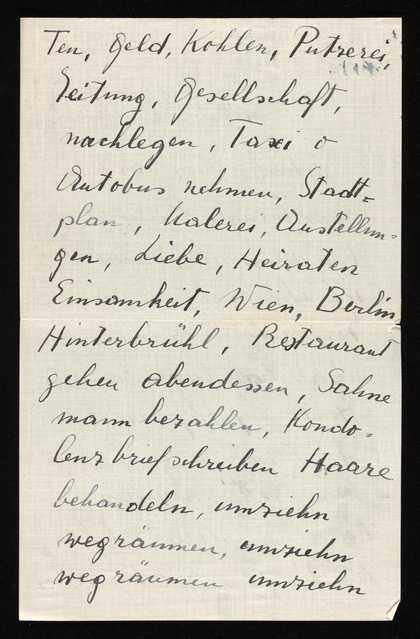 Ten, Geld, Kohlen, Putzerei,
Zeitung, Gesellschaft,
nachlegen, Taxi o
Autobus nehmen, Stadt=
plan, Malerei, Austellun=
gen, Liebe, Heiraten
Einsamkeit, Wien, Berlin=
Hinterbrühl, Restaurant
gehen abendessen, Sahne
mann bezahlen, Kondo=
lenzbrief schreiben Haare
behandeln, umziehn
wegräumen, umziehn
wegräumen umziehn